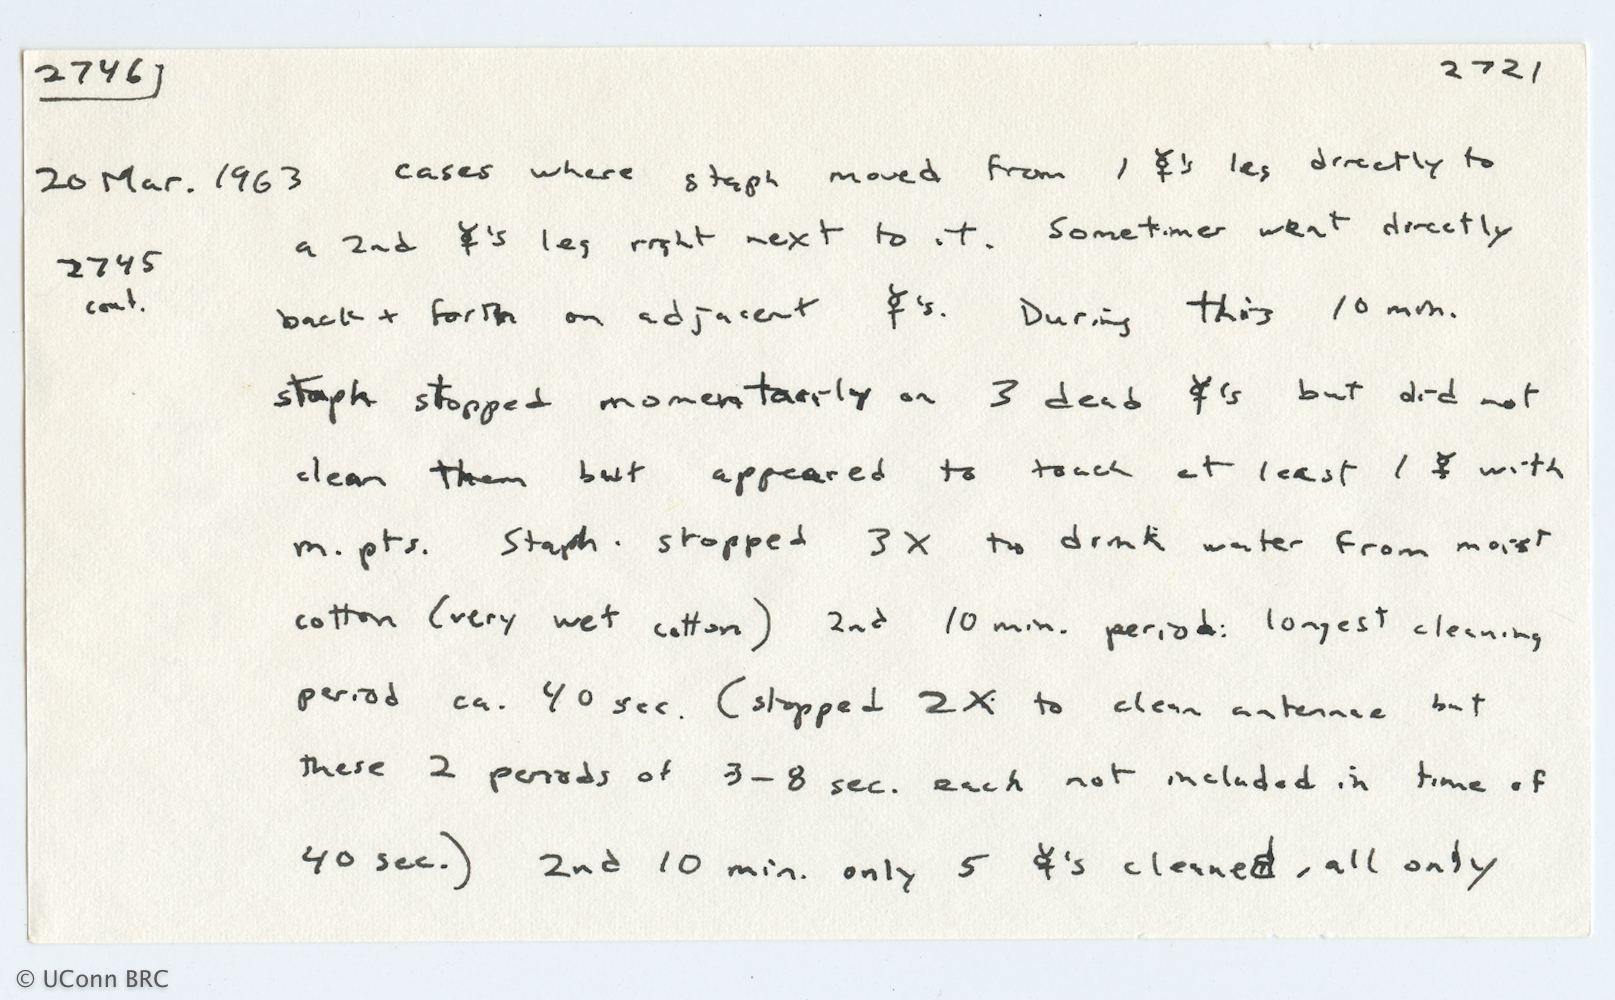 2746 2721
20 Mar. 1963 cases where staph moved from 1 ☿'s leg directly to
a 2nd ☿'s leg right next to it. Sometimes went directly
2745
cont.
back + forth on adjacent ☿'s. During this 10 min.
staph stopped momentarily on 3 dead ☿'s but did not
clean them but appeared to touch at least 1 ☿ with
m. pts. Staph. stopped 3X to drink water from moist
cotton (very wet cotton) 2nd 10 min. period: longest cleaning
period ca. 40 sec. (stopped 2X to clean antennae but
these 2 periods of 3-8 sec. each not included in time of
40 sec.) 2nd 10 min. only 5 ☿'s cleaned, all only
© UConn BRC